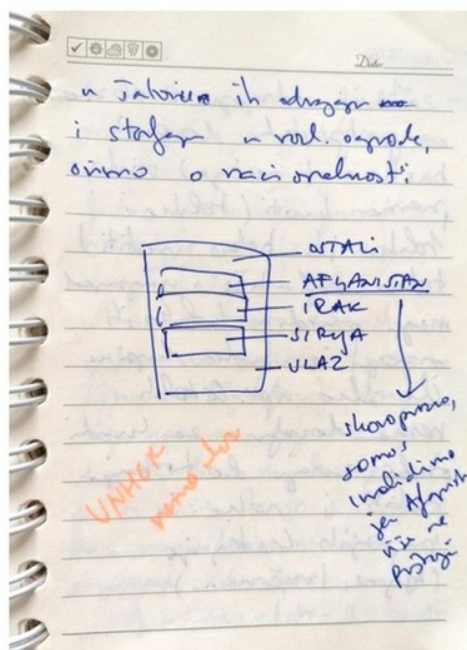 Date:
u ih odvajaju
i stavljaju u razl. ograde,
ovisno o nacionalnosti.
OSTALI
AFGANISTAN
IRAK
SIRIJA
ULAZ
skoro prazno,
samo
invalidi
jer Afganist.
više ne
puštaju
UNHCR